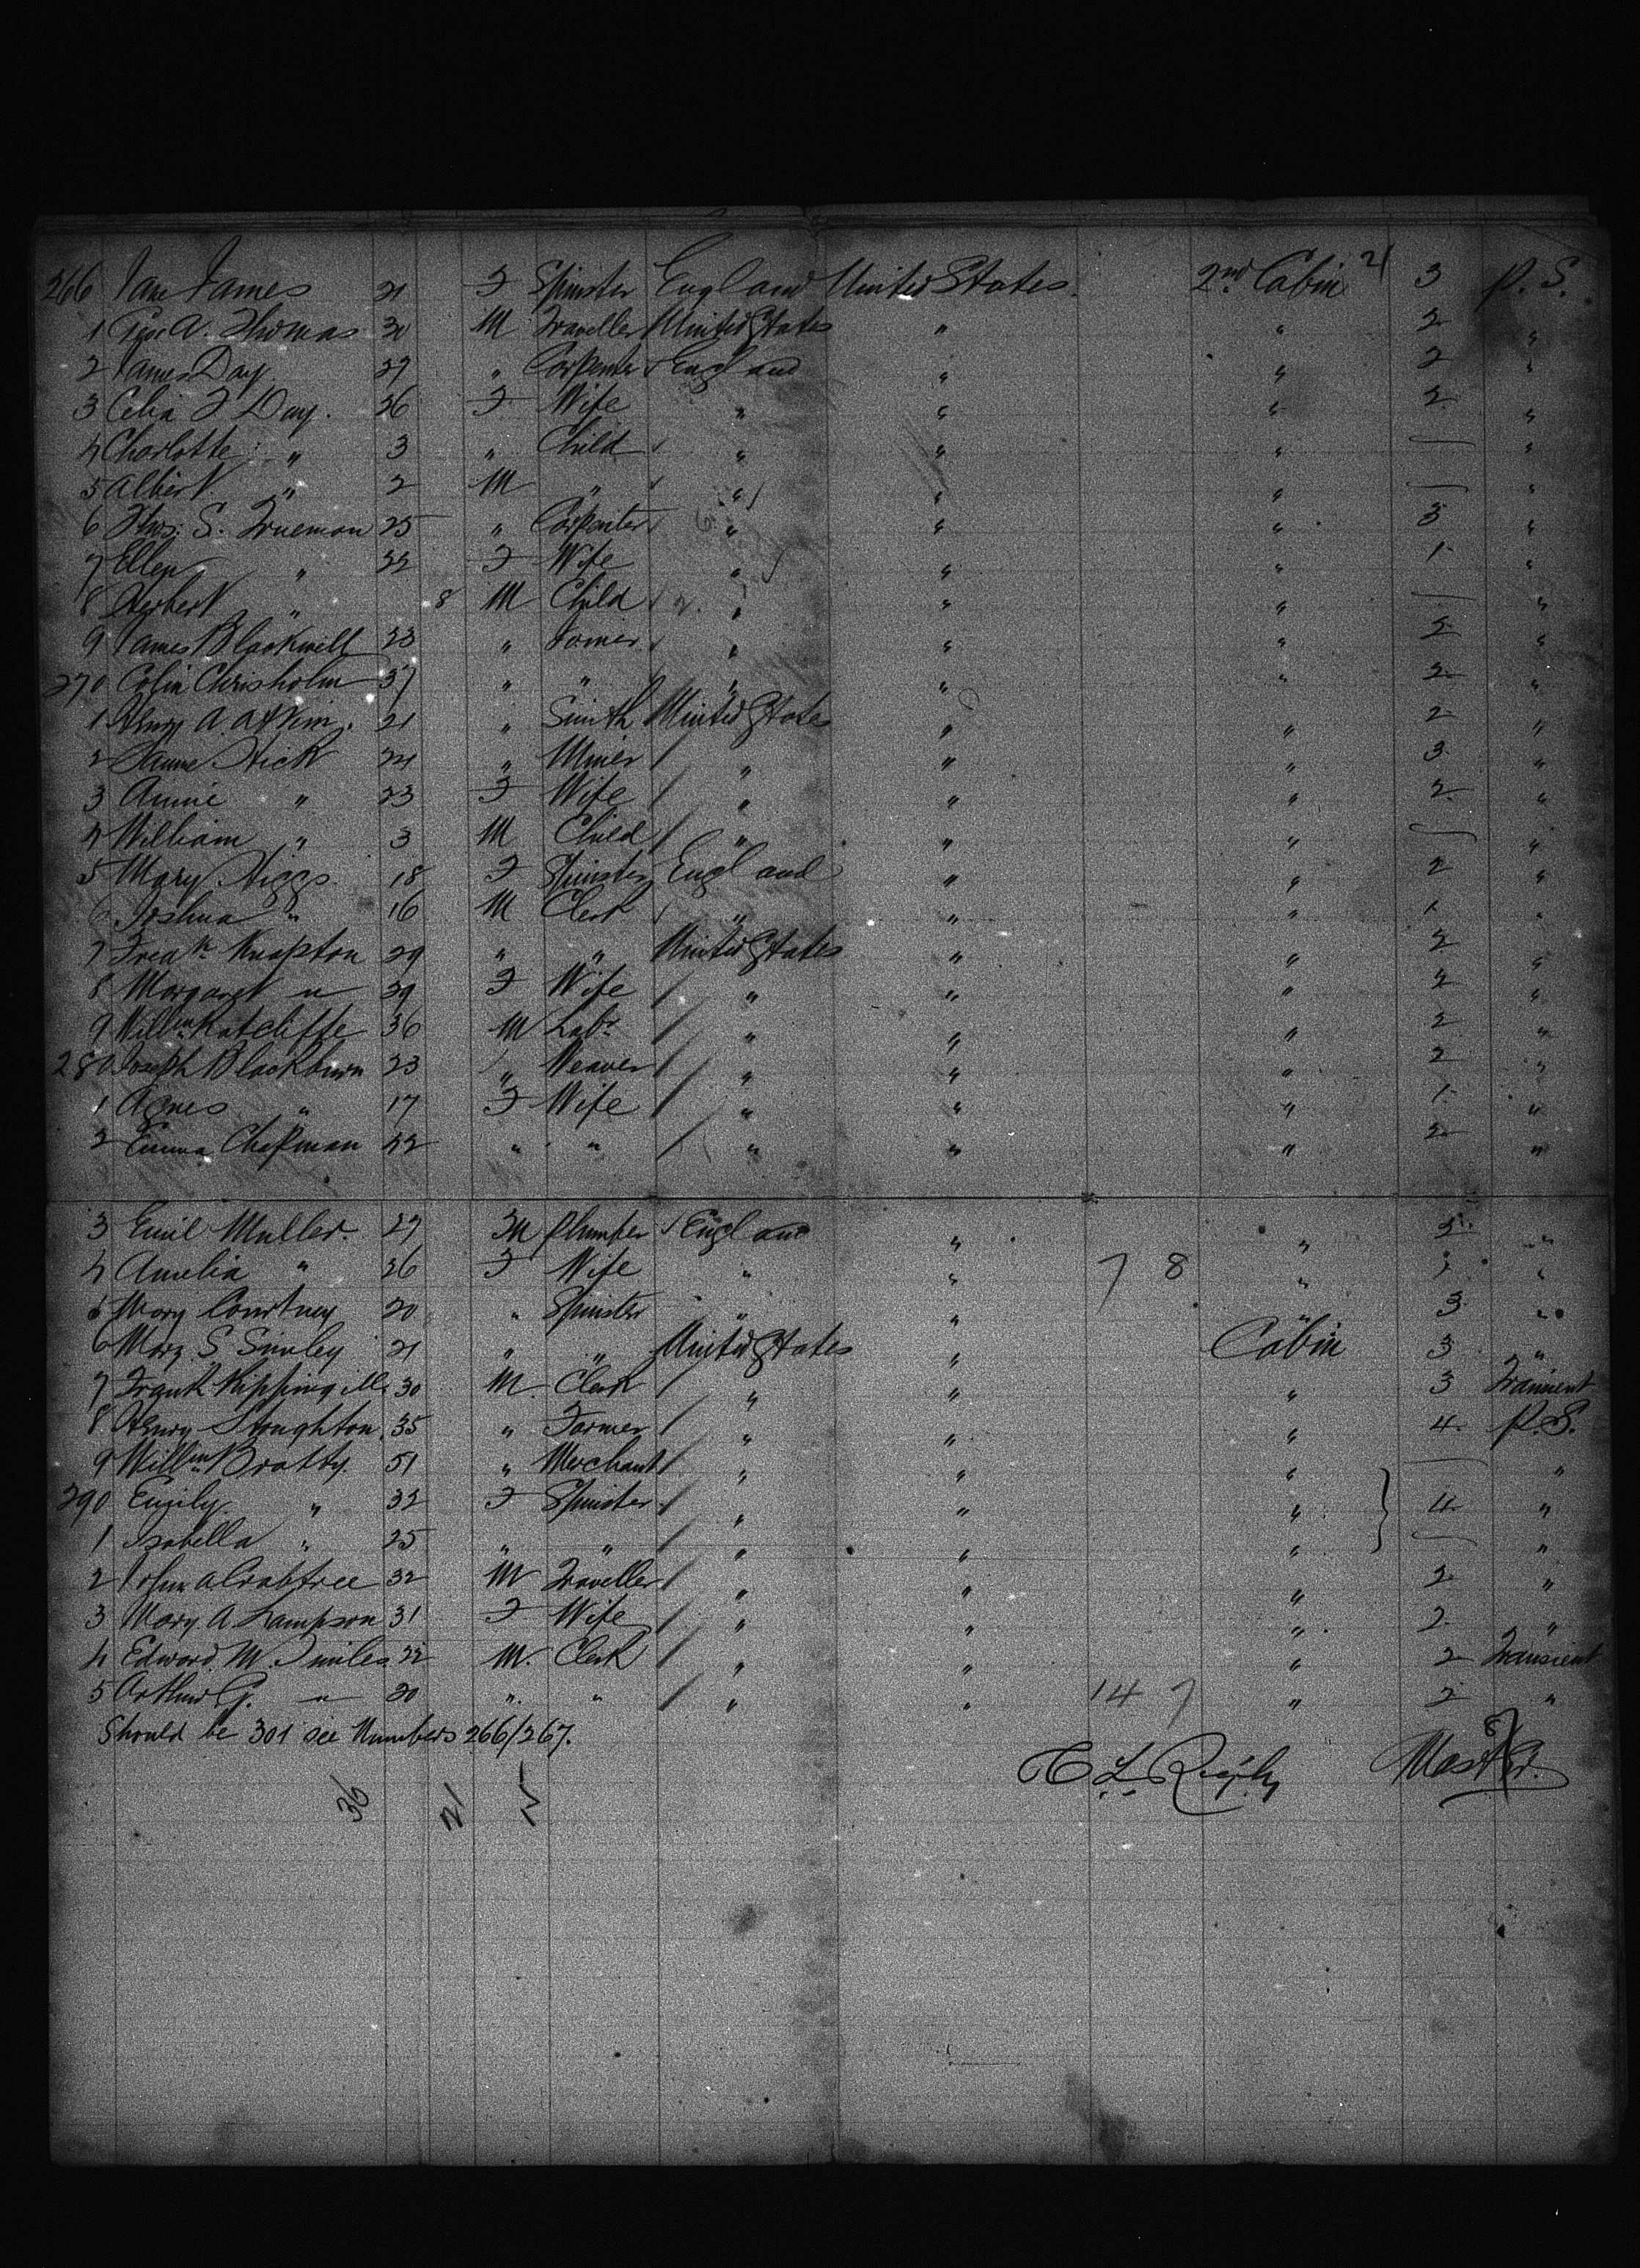 266 Jane James 21 F Spinster England United States 2nd Cabin 21 3 P. S.
1 Geo. A. Thomas 30 M Traveller United States " " 2 "
2 James Day 27 " Carpenter England " " 2 "
3 Celia F Day. 26 F Wife " " " 2 "
4 Charlotte " 3 " Child " " " — "
5 Albert " 2 M " " " " — "
6 Thos. S. Trueman 25 " Carpenter " " " 3 "
7 Ellen " 22 F Wife " " " 1 "
8 Herbert " 8 M Child " " " — "
9 James Blackwell 23 " " " " "
270 Colin Chrisholm 37 " " " " " 2 "
1 Henry A. 21 " Smith United States " " 2 "
2 Hick 24 " Miner " " " 3 "
3 Annie " 23 F Wife " " " 2 "
4 William " 3 M Child " " " — "
5 Mary Higgs 18 F Spinster England " " 2 "
6 Joshua " 16 M Clerk " " " 1 "
7 Fredk Knapton 29 " " United States " " 2 "
8 Margaret " 39 F Wife " " " 2 "
9 Willm Ratcliffe 36 M Labr " " " 2 "
280 Joseph Blackburn 23 " Weaver " " " 2 "
1 Agnes " 17 F Wife " " " 1 "
2 Emma Chapman 42 " " " " " 2 "
3 Emil Muller. 27 M Plumber England " " 2 "
4 Amelia " 26 F Wife " " 7 8 " "
5 Mary Courtney 20 " Spinster " " " 3 "
6 Mary S Smiley 21 " " United States " Cabin 3 "
7 Frank 30 M Clerk " " " 3 Transient
8 Henry Stoughton 35 " Farmer " " " 4 P. S.
9 Willm Bratty. 51 " Merchant " " " — "
290 Emily " 32 F Spinster " " " 4 "
1 Isabella " 25 " " " " " — "
2 John A Crabtree 32 M Traveller " " " 2 "
3 Mary A Lampson 31 F Wife " " " 2 "
4 Edward M. Smiles 22 M. Clerk " " " 2 Transient
5 Arthur G. " 20 " " " " 14 7 " 2 "
Should be 301 see Numbers 266/267.
Master.
36 21